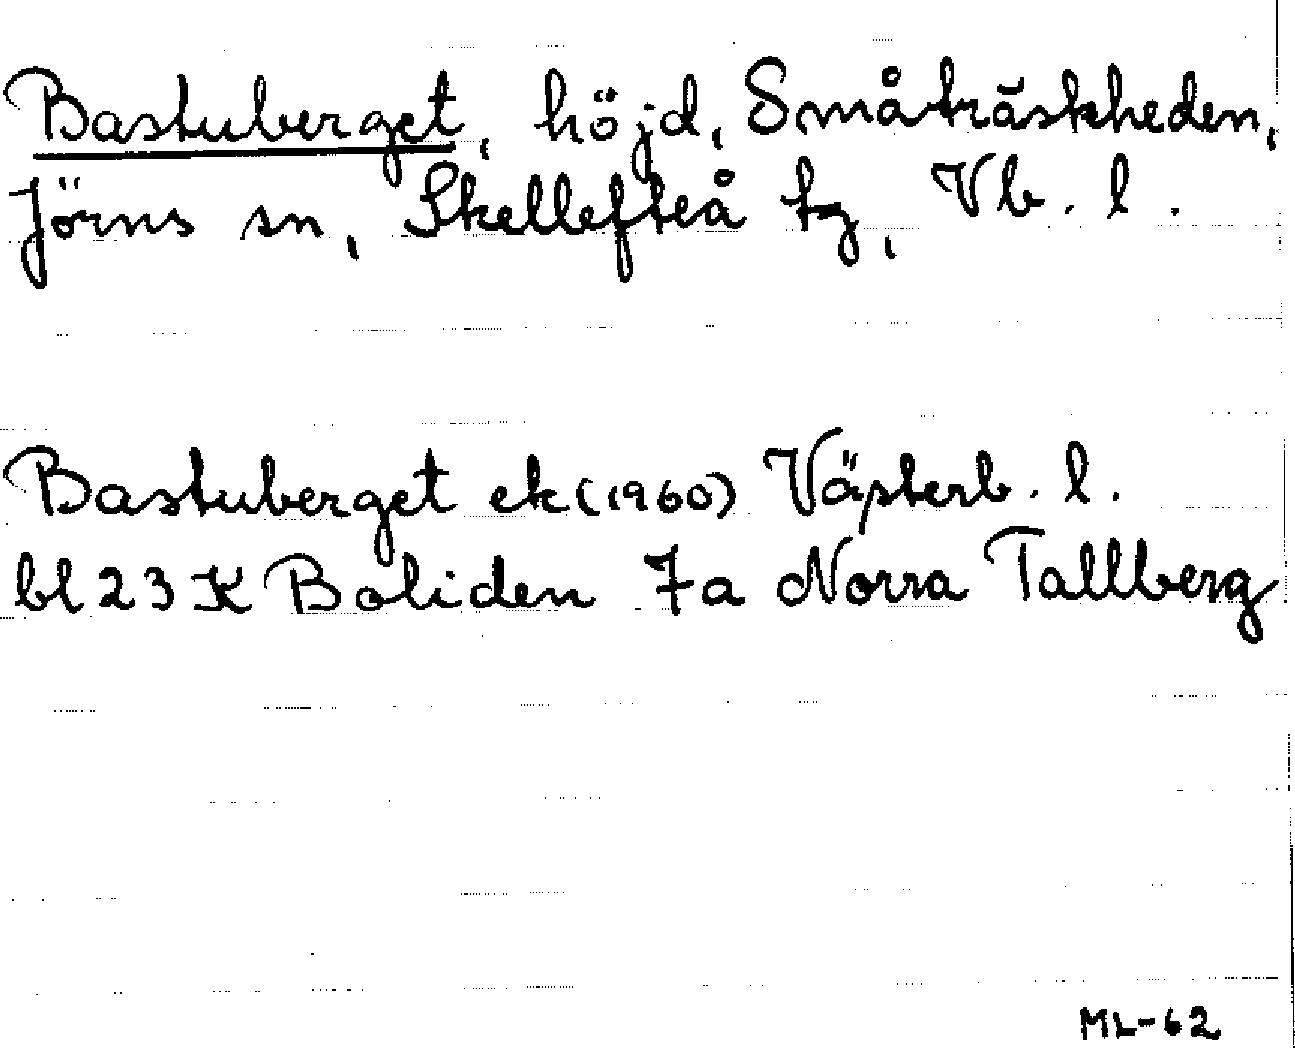 Bastuberget, höjd, Småträskheden,
Jörns sn, Skellefteå tg, Vb. l.
Bastuberget ek (1960) Västerb. l.
bl 23 K Boliden 7a Norra Tallberg
ML-62